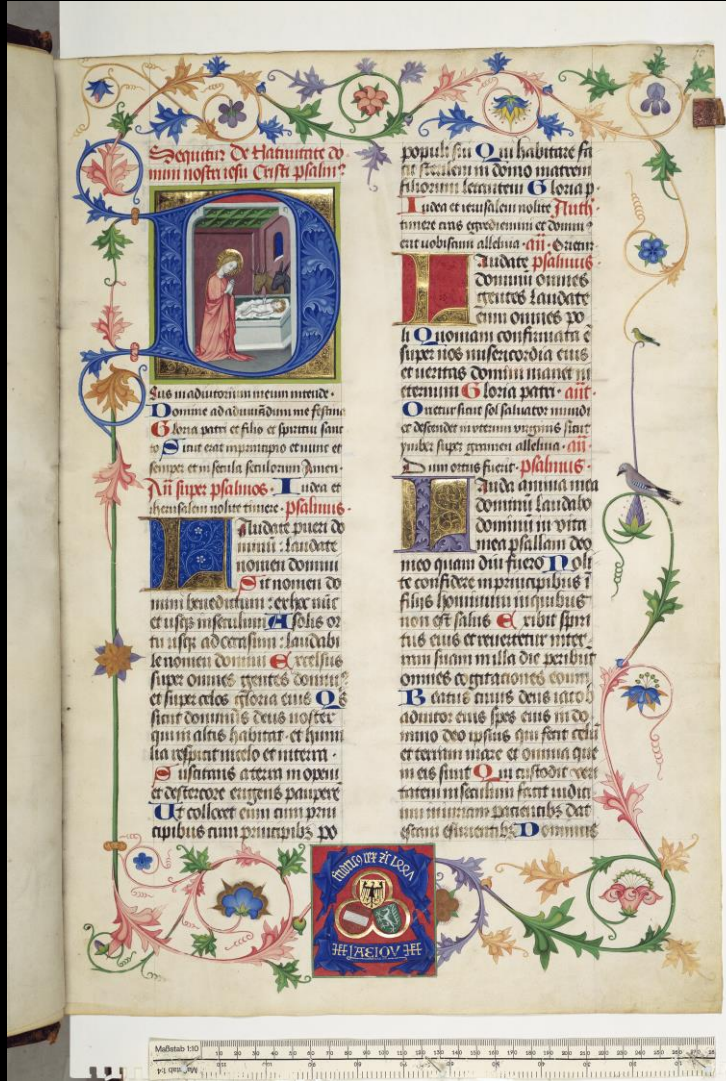 Sequitur De Natiuitate do
mini nostri iesu Cristi psalmꝰ
Eus in adiutorium meum intende ·
Domine ad adiuuãdum me festina
Gloria patri et filio et spiritui sanc
to Sicut erat in principio et nunc et
semper et in secula seculorum Amen ·
Añ super psalmos · Iudea et
iherusalem nolite timere · psalmus ·
Laudate pueri do
minum : laudate
nomen domini
Sit nomen do
mini benedictum : ex hoc nũc
et usqꝫ in seculum A solis or
tu usqꝫ ad occasum : laudabi
le nomen domini Excelsus
super omnes gentes dominꝰ
et super celos gloria eius Qͥs
sicut dominus deus noster
qui in altis habitat · et humi
lia respicit in celo et in terra ·
Suscitans a terra inopem
et de stercore erigens pauperẽ
Ut collocet eum cum prin
cipibus cum principibꝫ po
populi sui Qui habitare fa
cit sterilem in domo matrem
filiorum letantem Gloria p ·
Iudea et ierusalem nolite Anth ·
timere cras egrediemini et dominꝰ
erit uobiscum alleluia · añ · Orietur
Laudate psalmus
dominum omnes
gentes Laudate
eum omnes po
li Quoniam confirmata ẽ
super nos misericordia eius
et ueritas domini manet in
eternum Gloria patri · añt ·
Orietur sicut sol saluator mundi
et descendet in uterum uirginis sicut
ymber super gramen alleluia · añ ·
Dum ortus fuerit · psalmus ·
Lauda anima mea
dominũ laudabo
dominum in vita
mea psallam deo
meo quam diu fuero Noli
te confidere in principibus ĩ
filijs hominum in quibus
non est salus Exibit spiri
tus eius et reuertetur in ter
ram suam in illa die peribũt
omnes cogitaciones eorum
Beatus cuius deus iacob
adiutor eius spes eius in do
mino deo ipsius qui fecit celũ
et terram mare et omnia que
in eis sunt Qui custodit veri
tatem in seculum facit iudici
um iniuriam pacientibꝫ dat
escam esurientibꝫ Dominus
Maßstab 1:10
Maßstab 1:4